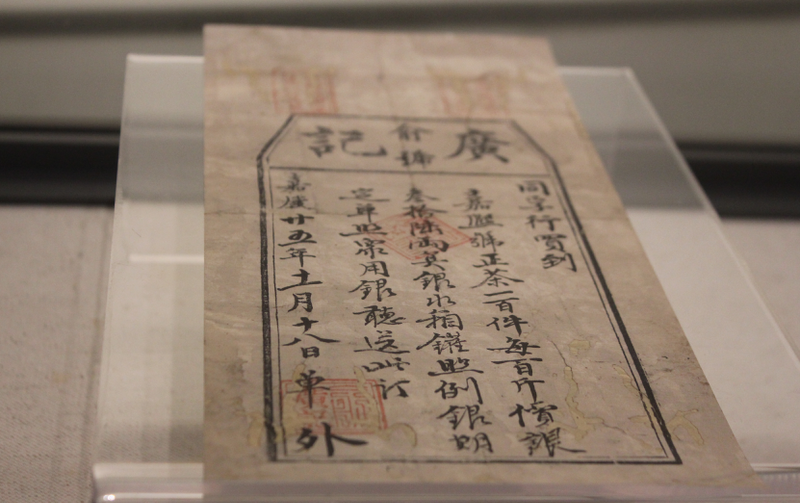 廣號記
同孚行買到
嘉熙號正茶一百件每百斤價銀
叁拾陸兩其銀水箱鑵照例銀明
照用銀聽送此訂
嘉慶廿五年十一月十八日單
外